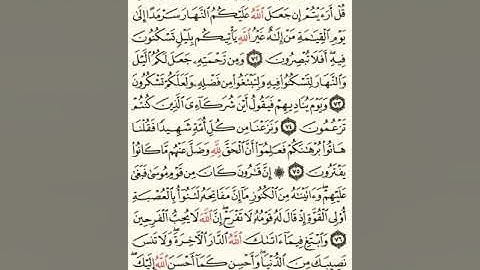 قُلْ أَرَءَيْتُمْ إِن جَعَلَ ٱللَّهُ عَلَيْكُمُ ٱلنَّهَارَ سَرْمَدًا إِلَىٰ
يَوْمِ ٱلْقِيَٰمَةِ مَنْ إِلَٰهٌ غَيْرُ ٱللَّهِ يَأْتِيكُم بِلَيْلٍ تَسْكُنُونَ
فِيهِ أَفَلَا تُبْصِرُونَ ٧٢ وَمِن رَّحْمَتِهِۦ جَعَلَ لَكُمُ ٱلَّيْلَ
وَٱلنَّهَارَ لِتَسْكُنُوا۟ فِيهِ وَلِتَبْتَغُوا۟ مِن فَضْلِهِۦ وَلَعَلَّكُمْ تَشْكُرُونَ
٧٣ وَيَوْمَ يُنَادِيهِمْ فَيَقُولُ أَيْنَ شُرَكَآءِىَ ٱلَّذِينَ كُنتُمْ
تَزْعُمُونَ ٧٤ وَنَزَعْنَا مِن كُلِّ أُمَّةٍ شَهِيدًا فَقُلْنَا
هَاتُوا۟ بُرْهَٰنَكُمْ فَعَلِمُوٓا۟ أَنَّ ٱلْحَقَّ لِلَّهِ وَضَلَّ عَنْهُم مَّا كَانُوا۟
يَفْتَرُونَ ٧٥ ۞ إِنَّ قَٰرُونَ كَانَ مِن قَوْمِ مُوسَىٰ فَبَغَىٰ
عَلَيْهِمْ وَءَاتَيْنَٰهُ مِنَ ٱلْكُنُوزِ مَآ إِنَّ مَفَاتِحَهُۥ لَتَنُوٓأُ بِٱلْعُصْبَةِ
أُو۟لِى ٱلْقُوَّةِ إِذْ قَالَ لَهُۥ قَوْمُهُۥ لَا تَفْرَحْ إِنَّ ٱللَّهَ لَا يُحِبُّ ٱلْفَرِحِينَ
٧٦ وَٱبْتَغِ فِيمَآ ءَاتَىٰكَ ٱللَّهُ ٱلدَّارَ ٱلْءَاخِرَةَ وَلَا تَنسَ
نَصِيبَكَ مِنَ ٱلدُّنْيَا وَأَحْسِن كَمَآ أَحْسَنَ ٱللَّهُ إِلَيْكَ